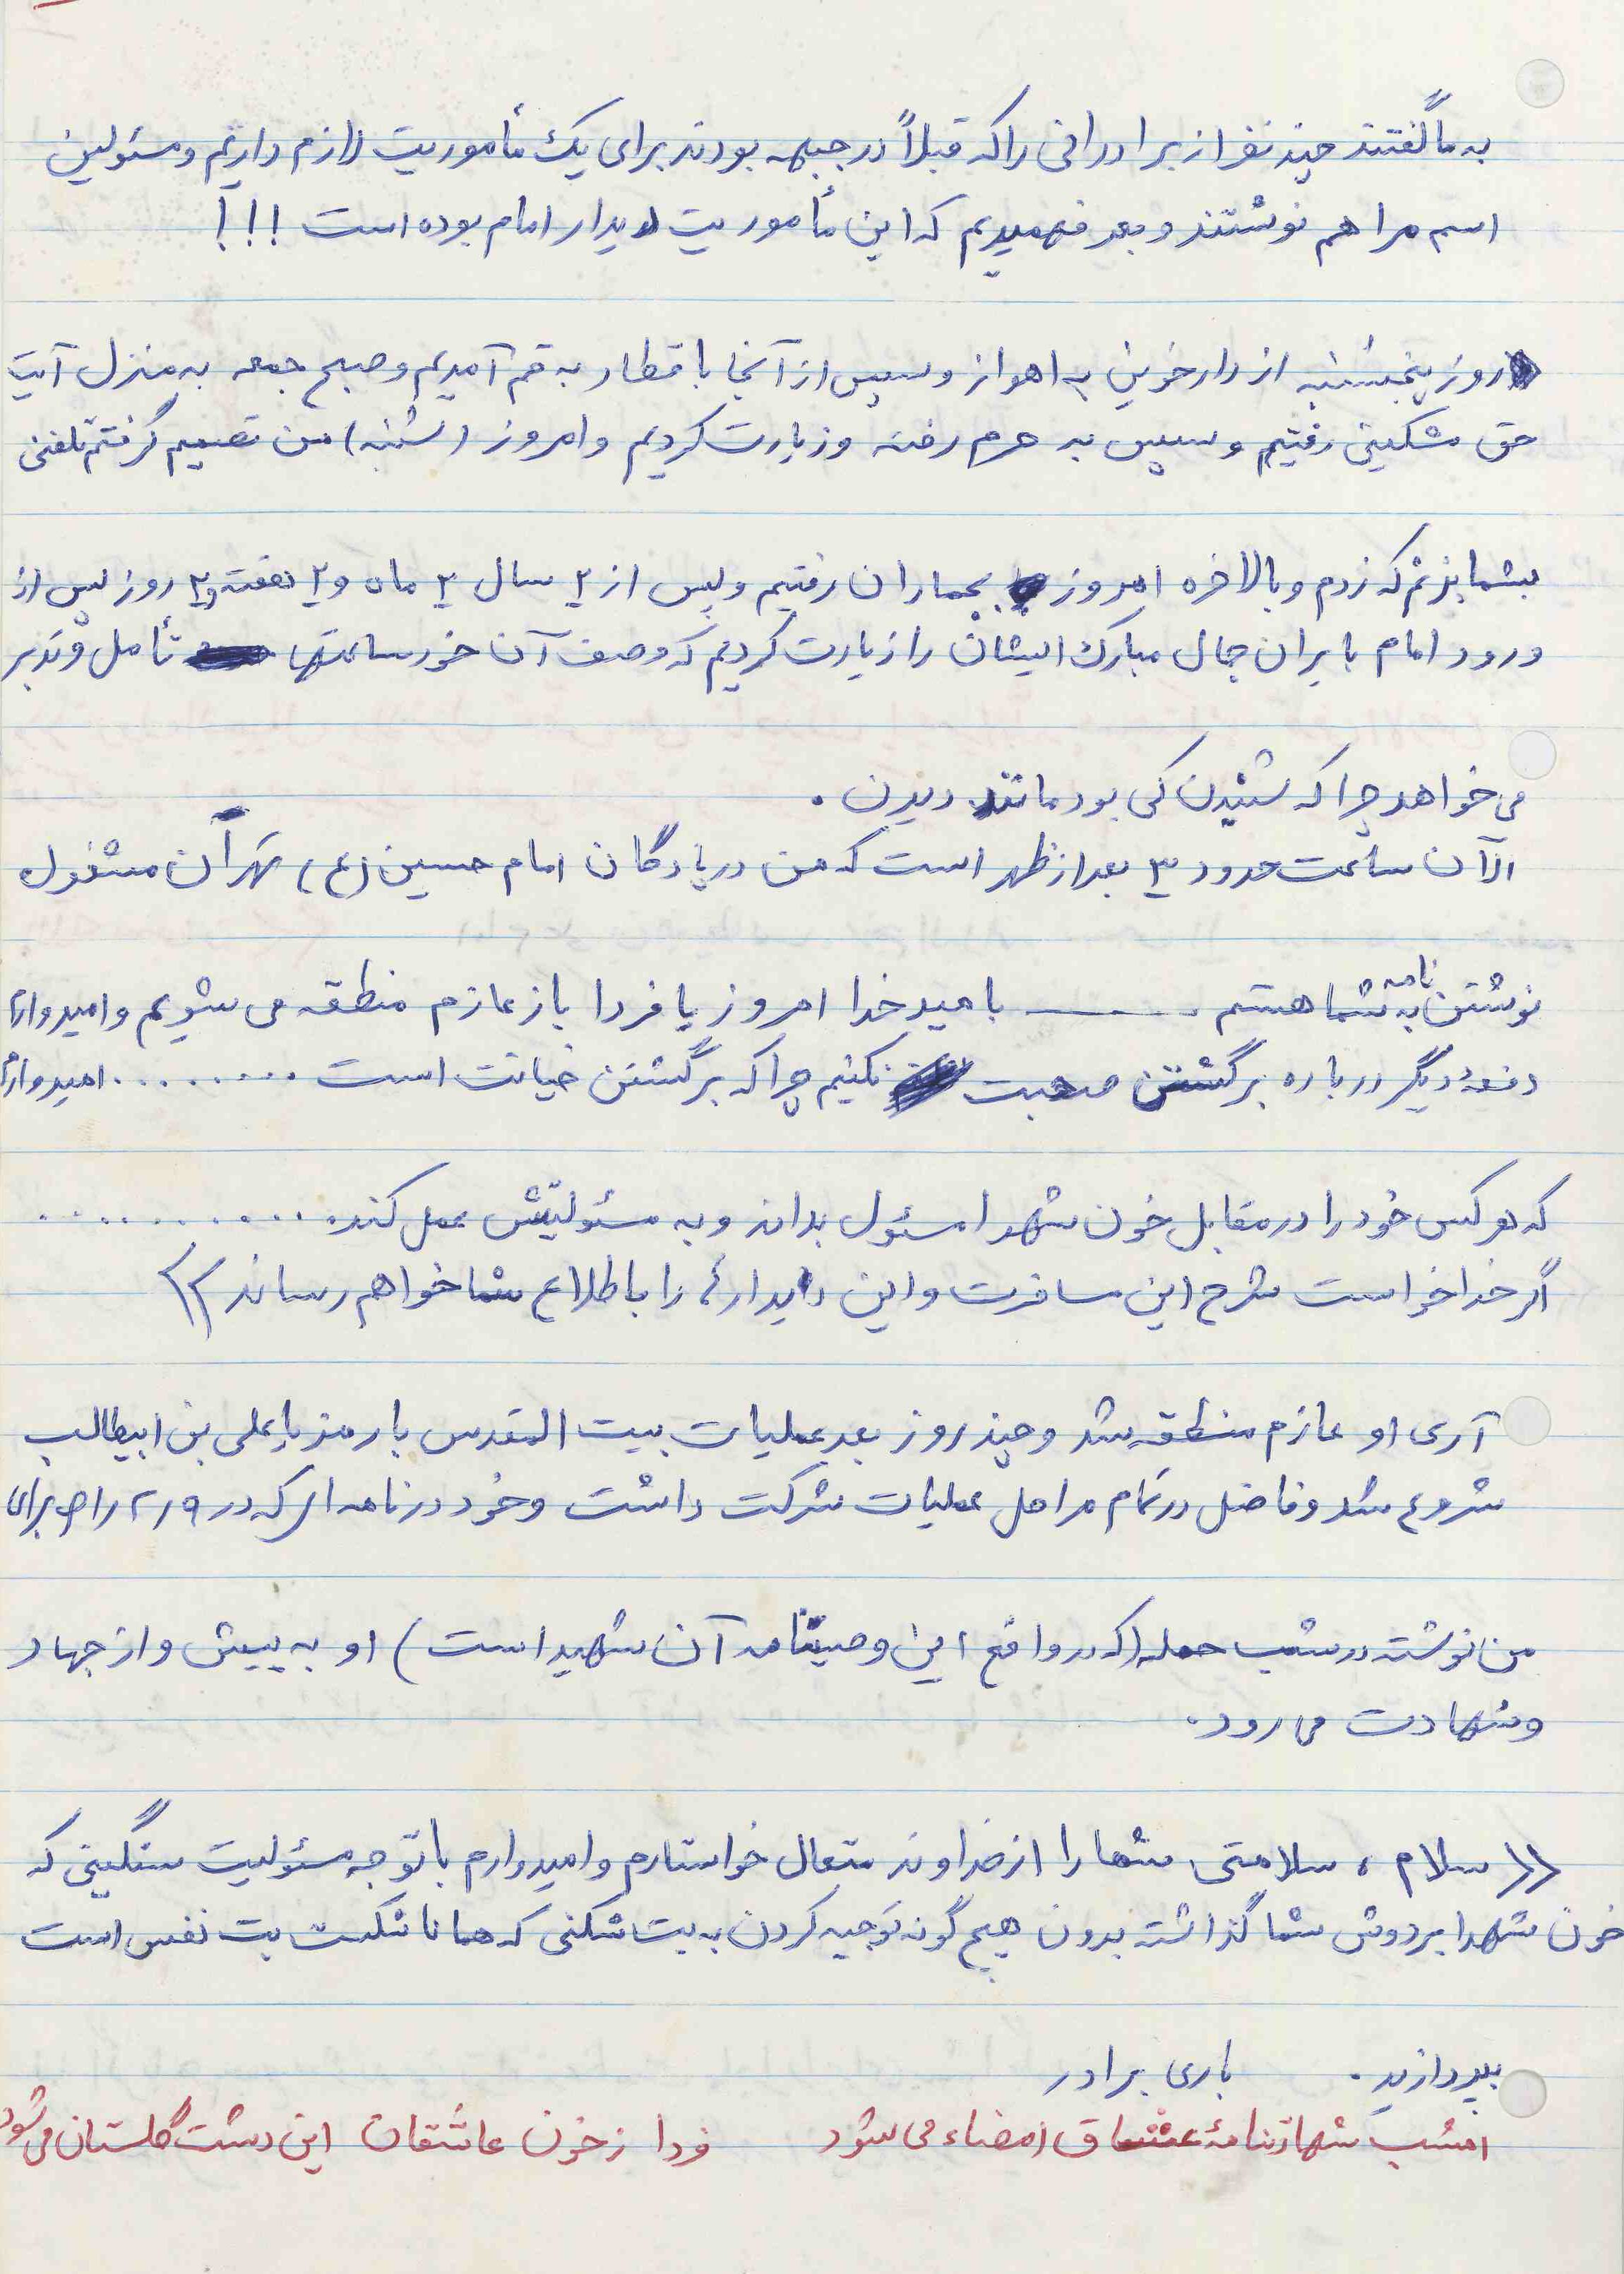 به ما گفتند چند نفر از برادرانی را که قبلاً در جبهه بودند برای یک مأموریت لازم داریم و مسئولین
اسم مرا هم نوشتند و بعد فهمیدیم که این مأموریت دیدار امام بوده است !!!
روز پنجشنبه از دارخوین به اهواز و سپس از آنجا با قطار به قم آمدیم و صبح جمعه به منزل آیت
حق مشکینی رفتیم و سپس به حرم رفته و زیارت کردیم و امروز (شنبه) من تصمیم گرفتم تلفنی
بشما بزنم که زدم و بالاخره امروز بجماران رفتیم و پس از ۲ سال ۲ ماه و ۲ هفته و ۲ روز پس از
ورود امام بایران جمال مبارک ایشان را زیارت کردیم که وصف آن خود ساعتها تأمل و تدبر
می خواهد چرا که شنیدن کی بود مانند دیدن .
الآن ساعت حدود ۳ بعد از ظهر است که من در پادگان امام حسین (ع) تهران مشغول
نوشتن نامه به شما هستم . ــــــ بامید خدا امروز یا فردا باز عازم منطقه می شویم و امیدوارم
دفعهٔ دیگر درباره برگشتن صحبت نکنیم چرا که برگشتن خیانت است ......... امیدوارم
که هر کس خود را در مقابل خون شهدا مسئول بداند و به مسئولیتش عمل کند. ...........
اگر خدا خواست شرح این مسافرت و این دیدار را باطلاع شما خواهم رساند >>
آری او عازم منطقه شد و چند روز بعد عملیات بیت المقدس با رمز یا علی بن ابیطالب
شروع شد و فاضل در تمام مراحل عملیات شرکت داشت و خود در نامه ای که در ۲/۹ برای
من نوشته در شب حمله (که در واقع این وصیتنامه آن شهید است) او به پیش و از جهاد
و شهادت می رود.
<< سلام ، سلامتی شما را از خداوند متعال خواستارم و امیدوارم با توجه مسئولیت سنگینی که
خون شهدا بر دوش شما گذاشته بدون هیچ گونه توجیه کردن به بت شکنی که همانا شکست بت نفس است
بپردازید . باری برادر
امشب شهادتنامهٔ عشاق امضاء می شود فردا ز خون عاشقان این دشت گلستان می شود